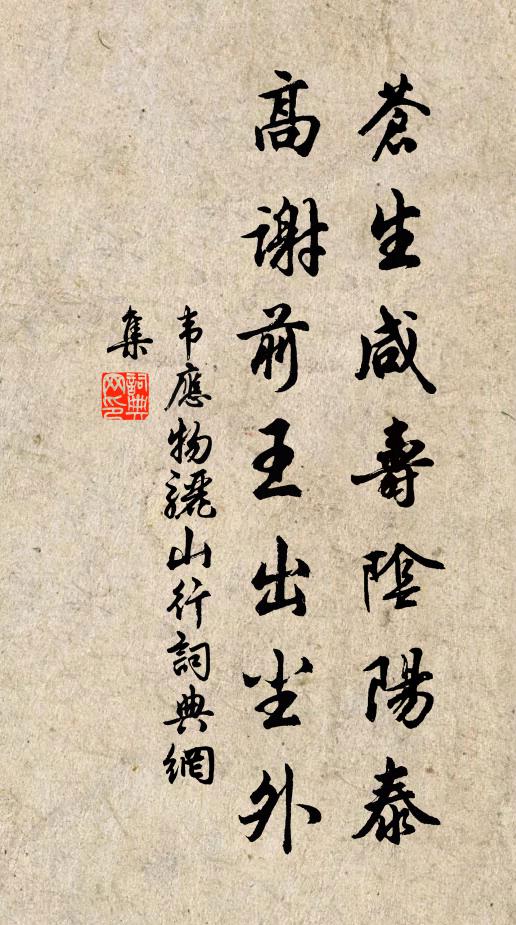 蒼生咸壽陰陽泰
高謝前王出尘外
韦應物驪山行詞典網
集
詞典网印